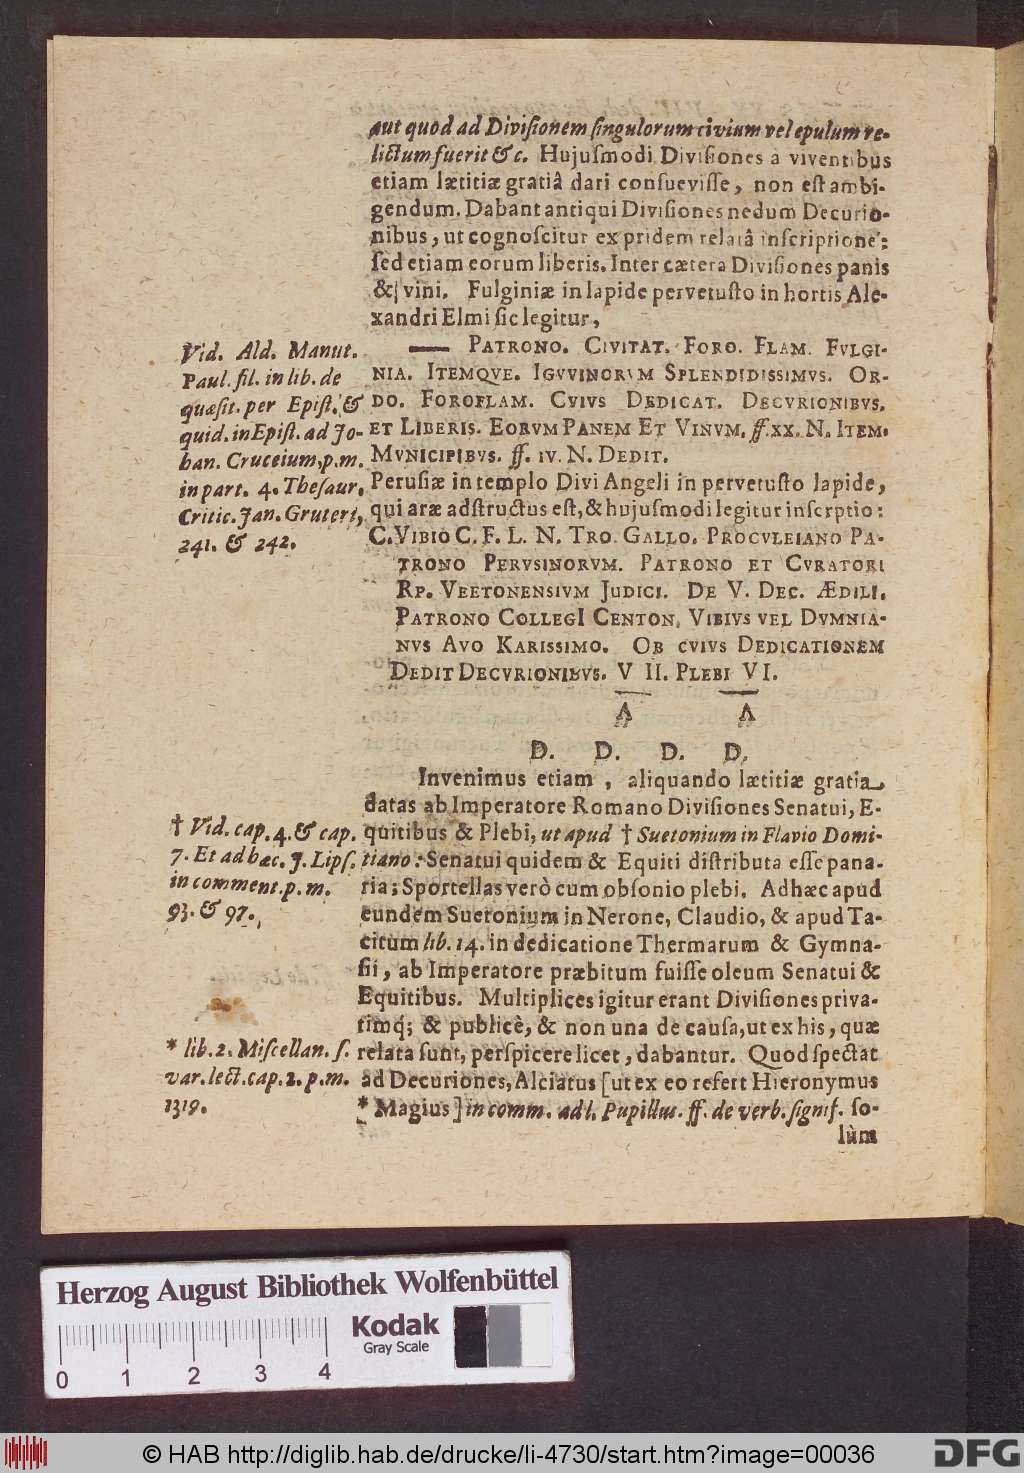 aut quod ad Diviſionem ſingulorum civium vel epulum re-
lictum fuerit &c. Hujuſmodi Diviſiones a viventibus
etiam lætitiæ gratiâ dari conſueviſſe, non eſt ambi-
gendum. Dabant antiqui Diviſiones nedum Decurio-
nibus, ut cognoſcitur ex pridem relatâ inſcriptione:
ſed etiam eorum liberis. Inter cætera Diviſiones panis
& vini. Fulginiæ in lapide pervetuſto in hortis Ale-
xandri Elmi ſic legitur,
— PATRONO. CIVITAT. FORO. FLAM. FVLGI-
NIA. ITEMQVE. IGVVINORVM SPLENDIDISSIMVS. OR-
DO. FOROFLAM. CVIVS DEDICAT. DECVRIONIBVS.
ET LIBERIS. EORVM PANEM ET VINVM. ff. XX. N. ITEM.
MVNICIPIBVS. ff. IV. N. DEDIT.
Vid. Ald. Manut.
Paul. fil. in lib. de
quæſit. per Epiſt. &
quid. in Epiſt. ad Jo-
han. Cruceium, p. m.
in part. 4. Theſaur.
Critic. Jan. Gruteri,
241. & 242.
Peruſiæ in templo Divi Angeli in pervetuſto lapide,
qui aræ adſtructus eſt, & hujuſmodi legitur inſcrptio:
C. VIBIO C. F. L. N. TRO. GALLO. PROCVLEIANO PA-
TRONO PERVSINORVM. PATRONO ET CVRATORI
RP. VEETONENSIVM JUDICI. DE V. DEC. ÆDILI.
PATRONO COLLEGI CENTON. VIBIVS VEL DVMNIA-
NVS AVO KARISSIMO. OB CVIVS DEDICATIONEM
DEDIT DECVRIONIBVS. V II. PLEBI VI.
D. D. D. D.
Invenimus etiam, aliquando lætitiæ gratia
datas ab Imperatore Romano Diviſiones Senatui, E-
quitibus & Plebi, ut apud † Suetonium in Flavio Domi-
tiano: Senatui quidem & Equiti diſtributa eſſe pana-
ria; Sportellas verò cum obſonio plebi. Adhæc apud
eundem Suetonium in Nerone, Claudio, & apud Ta-
citum lib. 14. in dedicatione Thermarum & Gymna-
ſii, ab Imperatore præbitum fuiſſe oleum Senatui &
Equitibus. Multiplices igitur erant Diviſiones priva-
timq́; & publicè, & non una de cauſa, ut ex his, quæ
relata ſunt, perſpicere licet, dabantur. Quod ſpectat
ad Decuriones, Alciatus [ut ex eo refert Hieronymus
* Magius] in comm. ad l. Pupillus. ff. de verb. ſignif. ſo-
lùm
† Vid. cap. 4. & cap.
7. Et ad hæc. J. Lipſ.
in comment. p. m.
93. & 97.
* lib. 2. Miſcellan. ſ.
var. lect. cap. 2. p. m.
1319.
Herzog August Bibliothek Wolfenbüttel
Kodak
Gray Scale
0 1 2 3 4
© HAB http://diglib.hab.de/drucke/li-4730/start.htm?image=00036
DFG